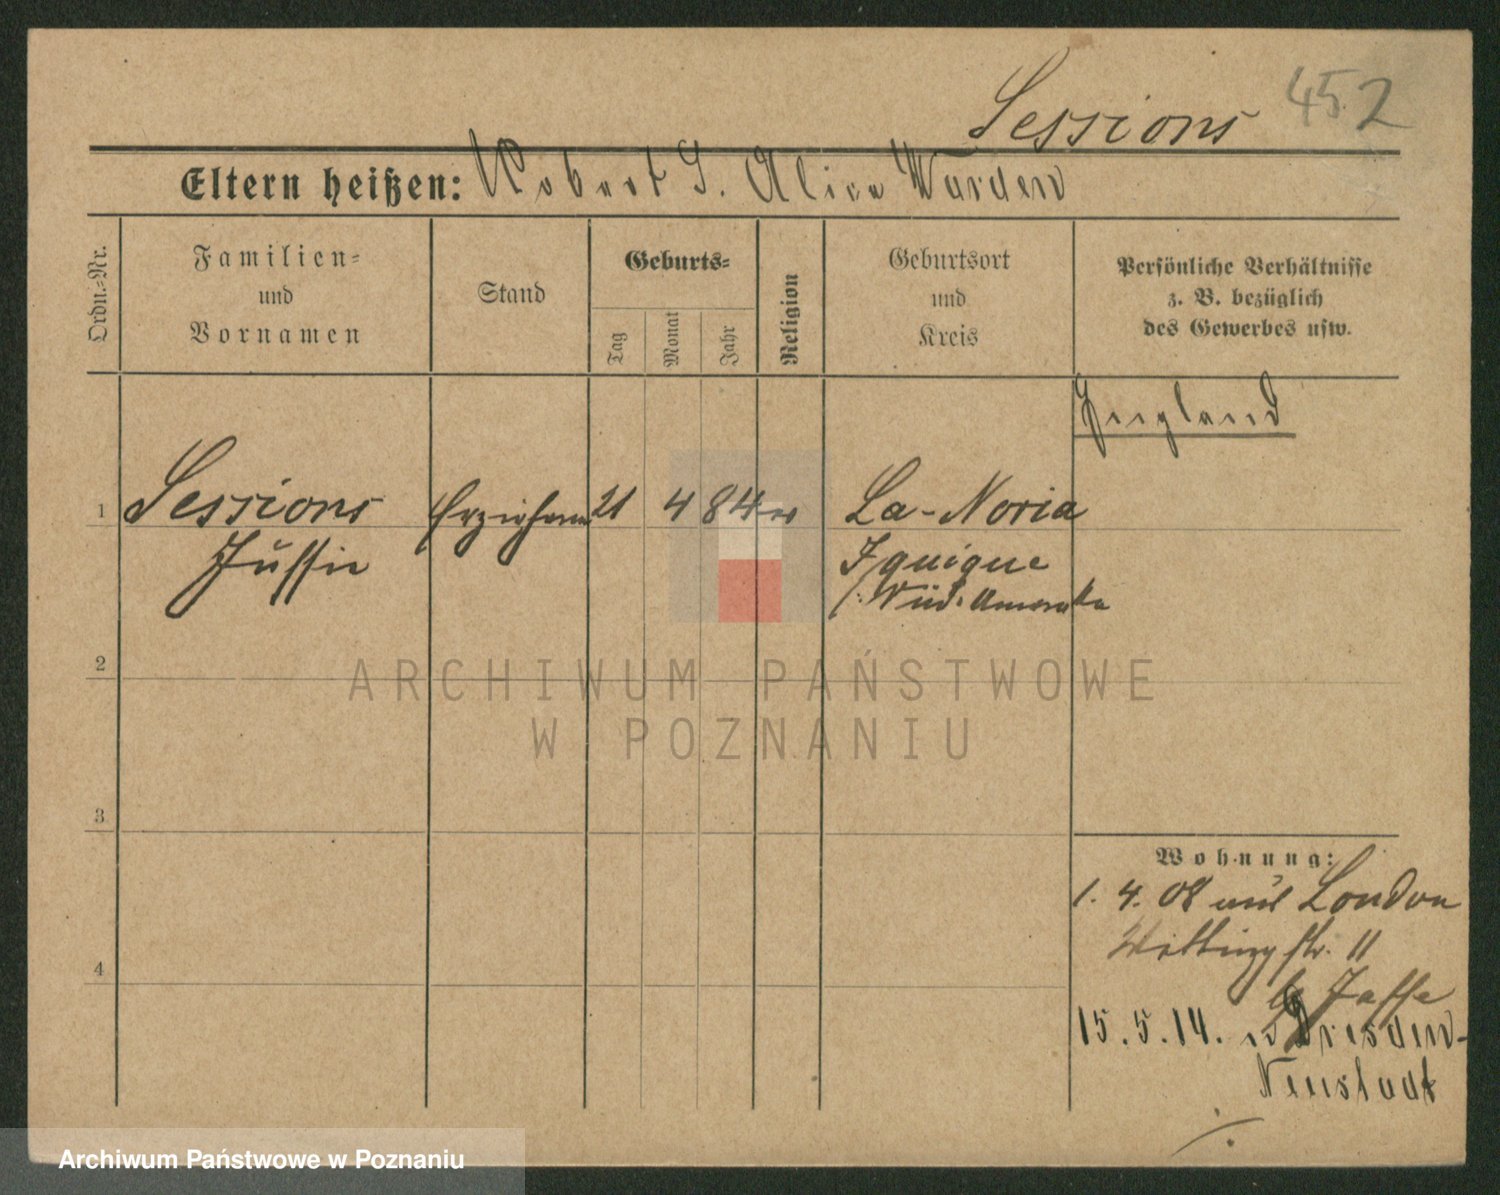 Sessions 452
Eltern heißen: Robert S. Alice Warden
Ordn.-Nr.
Familien-
und
Vornamen
Stand
Geburts-
Tag
Monat
Jahr
Religion
Geburtsort
und
Kreis
Persönliche Verhältnisse
z. B. bezüglich
des Gewerbes usw.
England
1 Sessions Erzieherin 21 4 84 ev La-Noria
Jussie
Iquique
Süd. Amerika
2
3
4
Wohnung:
1. 4. 08 aus London
str. 11
b Jaffe
15.5.14. n Dresden-
Neustadt
ARCHIWUM PAŃSTWOWE
W POZNANIU
Archiwum Państwowe w Poznaniu